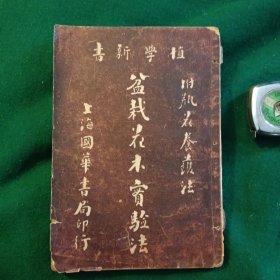 植學新書
附瓶花養護法
盆栽花木實驗法
上海國華書局印行